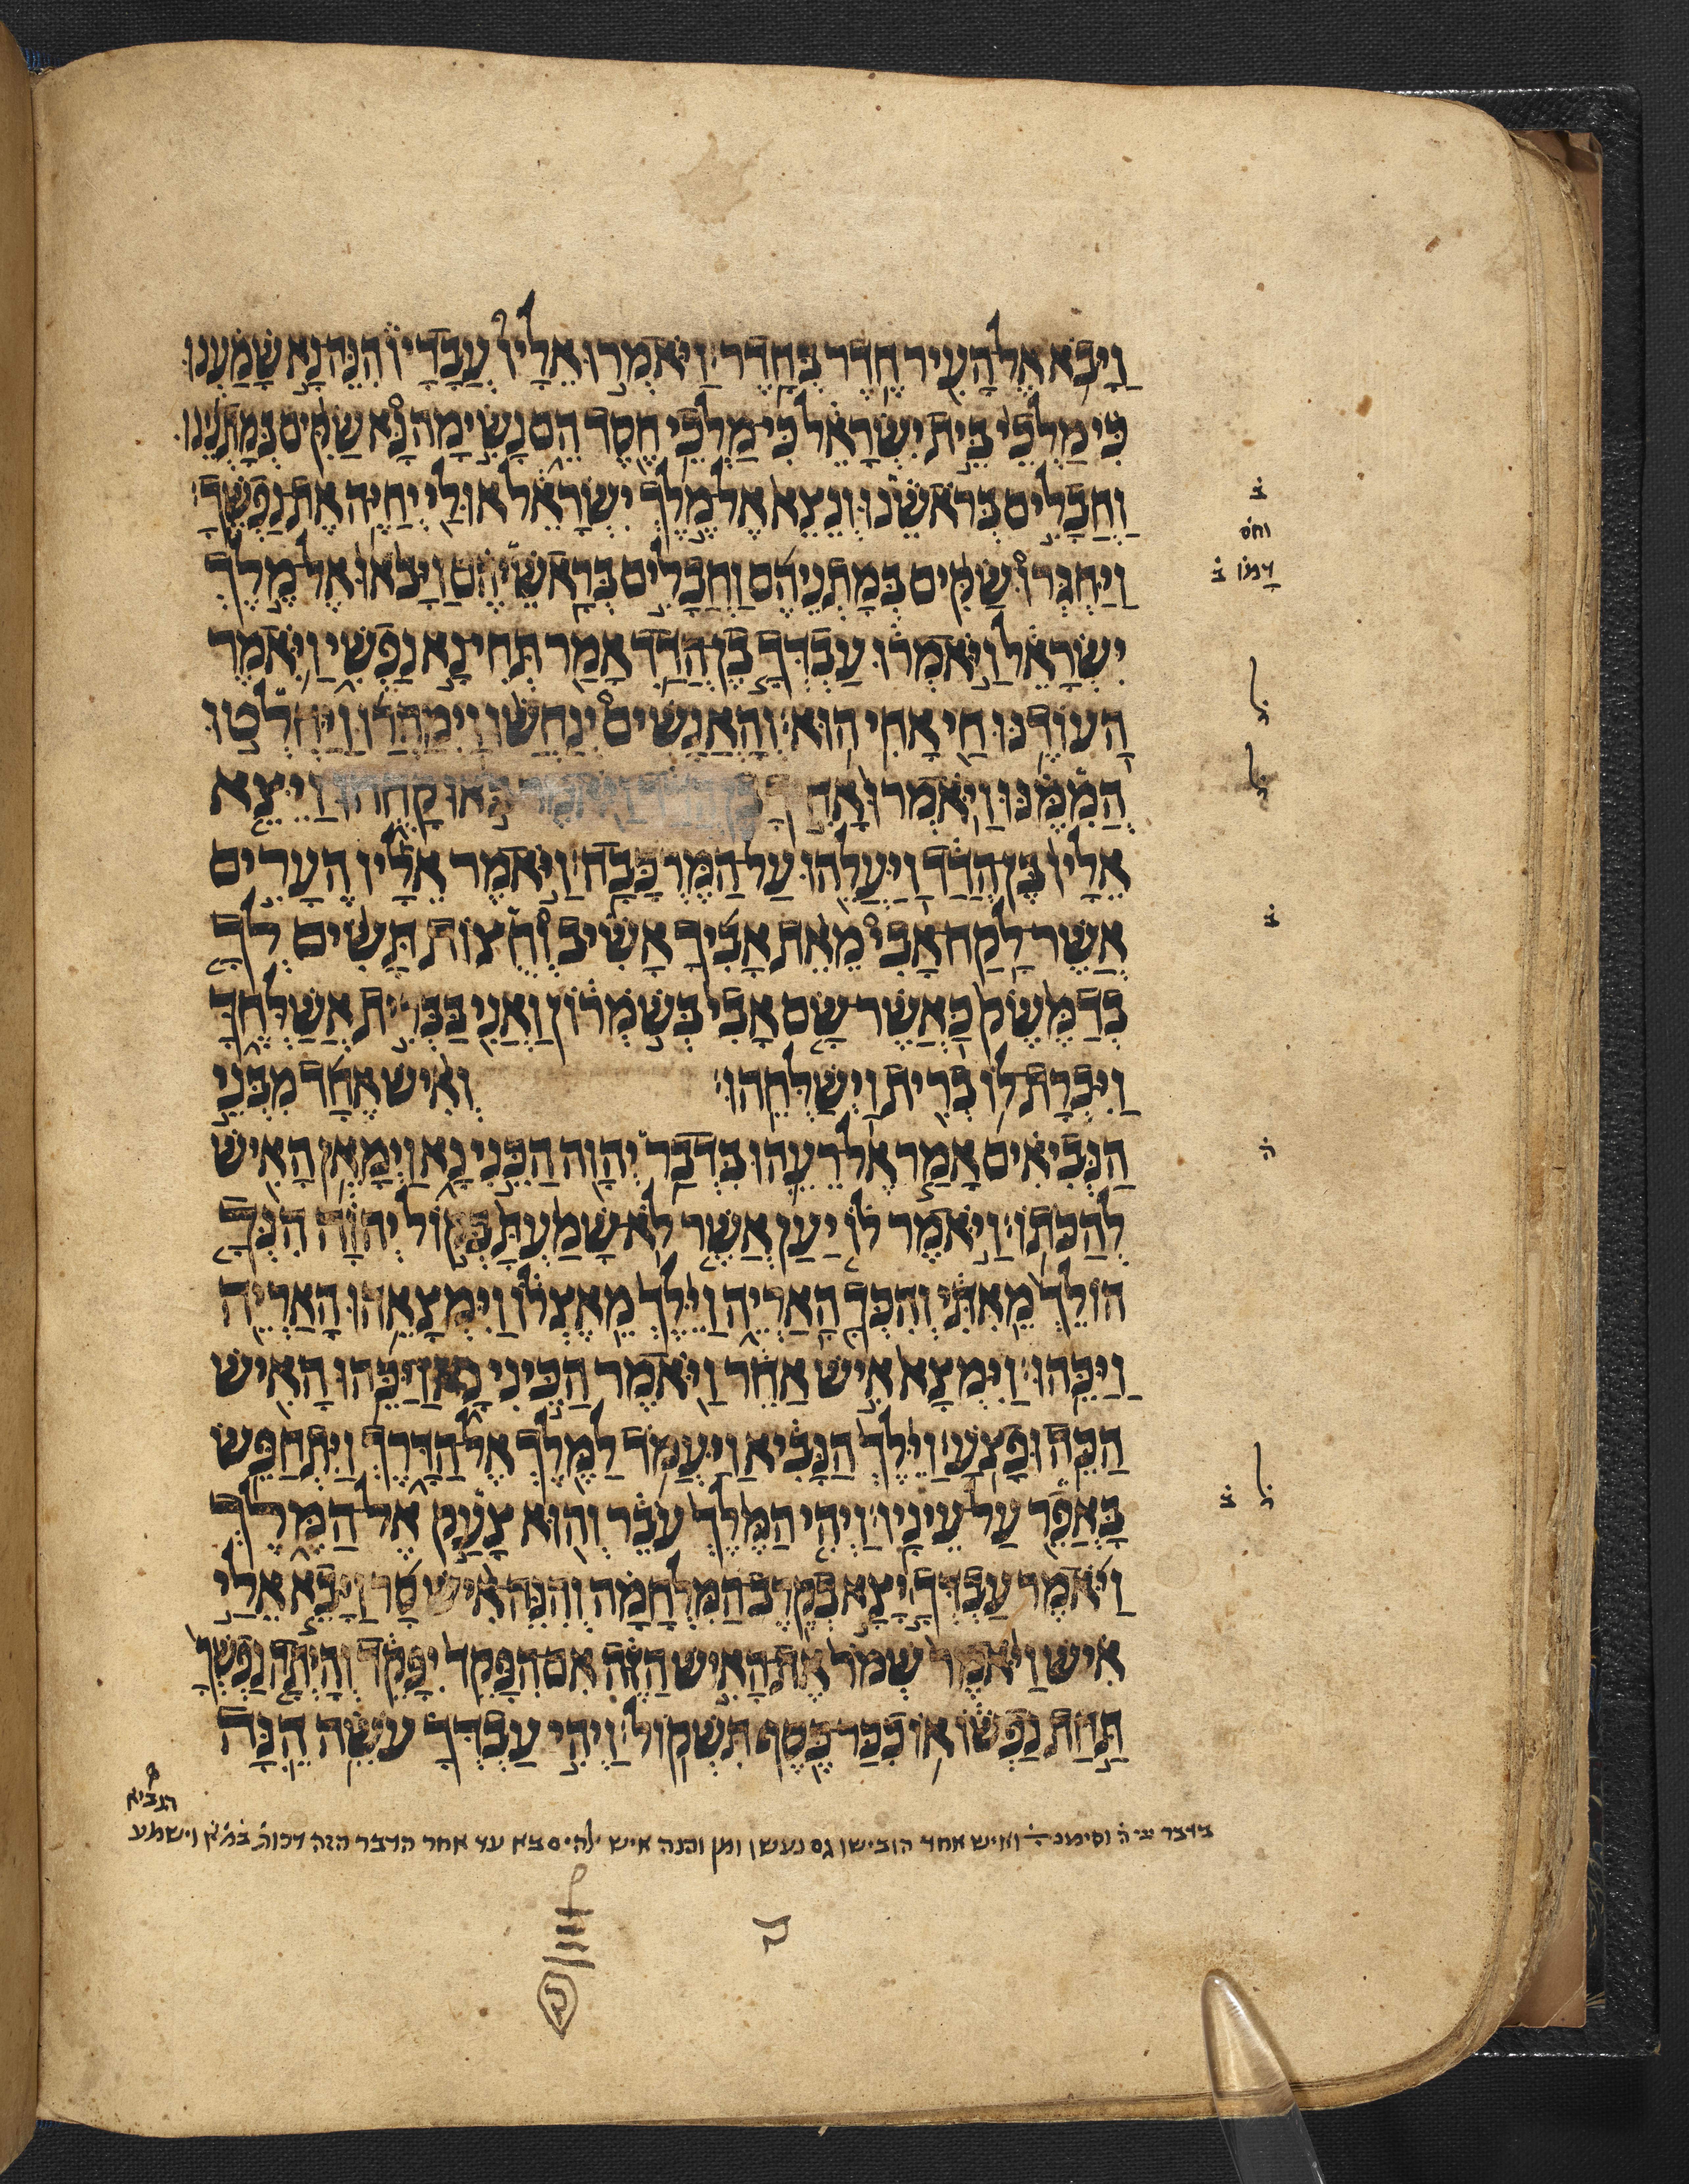 וַיָּבֹא אֶל הָעִיר חֶדֶר בְּחָדֶר׃ וַיֹּאמְרוּ אֵלָיו עֲבָדָיו הִנֵּה נָא שָׁמַעְנוּ
כִּי מַלְכֵי בֵּית יִשְׂרָאֵל כִּי מַלְכֵי חֶסֶד הֵם נָשִׂימָה נָּא שַׂקִּים בְּמָתְנֵינוּ
וַחֲבָלִים בְּרֹאשֵׁנוּ וְנֵצֵא אֶל מֶלֶךְ יִשְׂרָאֵל אוּלַי יְחַיֶּה אֶת נַפְשֶׁךָ׃
וַיַּחְגְּרוּ שַׂקִּים בְּמָתְנֵיהֶם וַחֲבָלִים בְּרָאשֵׁיהֶם וַיָּבֹאוּ אֶל מֶלֶךְ
יִשְׂרָאֵל וַיֹּאמְרוּ עַבְדְּךָ בֶן הֲדַד אָמַר תְּחִי נָא נַפְשִׁי וַיֹּאמֶר
הַעוֹדֶנּוּ חַי אָחִי הוּא׃ וְהָאֲנָשִׁים יְנַחֲשׁוּ וַיְמַהֲרוּ וַיַּחְלְטוּ
הֲמִמֶּנּוּ וַיֹּאמְרוּ בֶּן הֲדַד וַיֹּאמֶר בֹּאוּ קָחֻהוּ וַיֵּצֵא
אֵלָיו בֶּן הֲדַד וַיַּעֲלֵהוּ עַל הַמֶּרְכָּבָה׃ וַיֹּאמֶר אֵלָיו הֶעָרִים
אֲשֶׁר לָקַח אָבִי מֵאֵת אָבִיךָ אָשִׁיב וְחֻצוֹת תָּשִׂים לְךָ
בְדַמֶּשֶׂק כַּאֲשֶׁר שָׂם אָבִי בְּשֹׁמְרוֹן וַאֲנִי בַּבְּרִית אֲשַׁלְּחֶךָּ
וַיִּכְרָת לוֹ בְרִית וַיְשַׁלְּחֵהוּ׃ וְאִישׁ אֶחָד מִבְּנֵי
הַנְּבִיאִים אָמַר אֶל רֵעֵהוּ בִּדְבַר יְהוָה הַכֵּינִי נָא וַיְמָאֵן הָאִישׁ
לְהַכֹּתוֹ׃ וַיֹּאמֶר לוֹ יַעַן אֲשֶׁר לֹא שָׁמַעְתָּ בְּקוֹל יְהוָה הִנְּךָ
הוֹלֵךְ מֵאִתִּי וְהִכְּךָ הָאַרְיֵה וַיֵּלֶךְ מֵאֶצְלוֹ וַיִּמְצָאֵהוּ הָאַרְיֵה
וַיַּכֵּהוּ׃ וַיִּמְצָא אִישׁ אַחֵר וַיֹּאמֶר הַכֵּינִי נָא וַיַּכֵּהוּ הָאִישׁ
הַכֵּה וּפָצֹעַ׃ וַיֵּלֶךְ הַנָּבִיא וַיַּעֲמֹד לַמֶּלֶךְ אֶל הַדָּרֶךְ וַיִּתְחַפֵּשׂ
בָּאֲפֵר עַל עֵינָיו׃ וַיְהִי הַמֶּלֶךְ עֹבֵר וְהוּא צָעַק אֶל הַמֶּלֶךְ
וַיֹּאמֶר עַבְדְּךָ יָצָא בְקֶרֶב הַמִּלְחָמָה וְהִנֵּה אִישׁ סָר וַיָּבֵא אֵלַי
אִישׁ וַיֹּאמֶר שְׁמֹר אֶת הָאִישׁ הַזֶּה אִם הִפָּקֵד יִפָּקֵד וְהָיְתָה נַפְשְׁךָ
תַּחַת נַפְשׁוֹ אוֹ כִכַּר כֶּסֶף תִּשְׁקוֹל׃ וַיְהִי עַבְדְּךָ עֹשֵׂה הֵנָּה
ב
וחס
ב
ב
ה
ל
ל ב
הנביא
בדבר ייי ה וסימניה ואיש אחד הובישו גם נעשן ומן והנה איש להים בא עד אחר הדבר הזה דכות וישמע